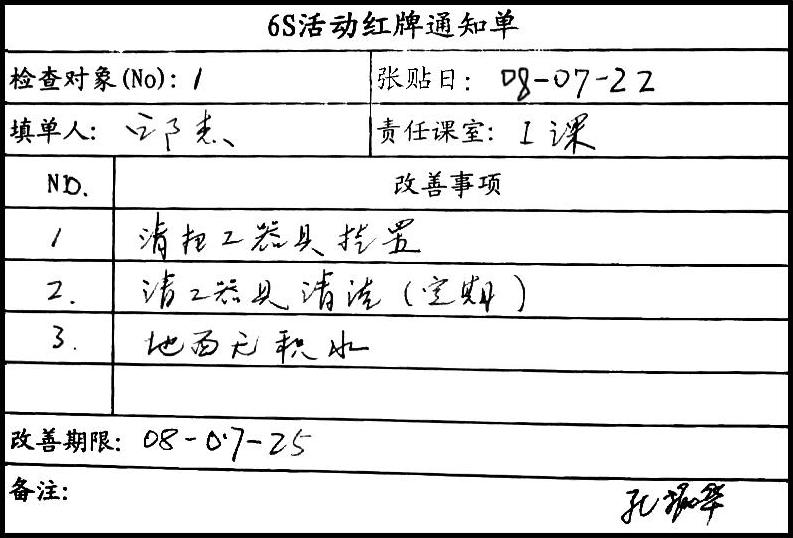 6S活动红牌通知单
检查对象(No): 1 张贴日: 08-07-22
填单人: 责任课室: I课
NO. 改善事项
1 清把工器具挂置
2. 清工器具清洁(定期)
3. 地面无积水
改善期限: 08-07-25
备注:
孔振华